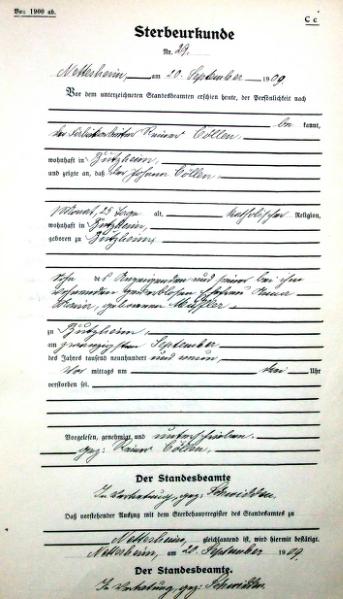 Von 1900 ab.
C c
Sterbeurkunde
Nr. 29.
Nettersheim, am 20. September 1909
Vor dem unterzeichneten Standesbeamten erschien heute, der Persönlichkeit nach
be kannt,
der Rainer Cöllen,
wohnhaft in
und zeigte an, daß der Johann Cöllen,
1 Monat, 23 Tage alt, katholischer Religion,
wohnhaft in
geboren zu
Sohn des Anzeigenden und seiner bei ihm
wohnenden gewerblosen Ehefrau Anna
geborenen
zu
am zwanzigsten September
des Jahres tausend neunhundert und neun,
Vor mittags um Uhr
verstorben sei.
Vorgelesen, genehmigt und unterschrieben.
gez: Rainer Cöllen,
Der Standesbeamte
In Vertretung, gez:
Daß vorstehender Auszug mit dem Sterbehauptregister des Standesamtes zu
Nettersheim, gleichlautend ist, wird hiermit bestätigt.
Nettersheim, am 20. September 1909.
Der Standesbeamte.
In Vertretung, gez: